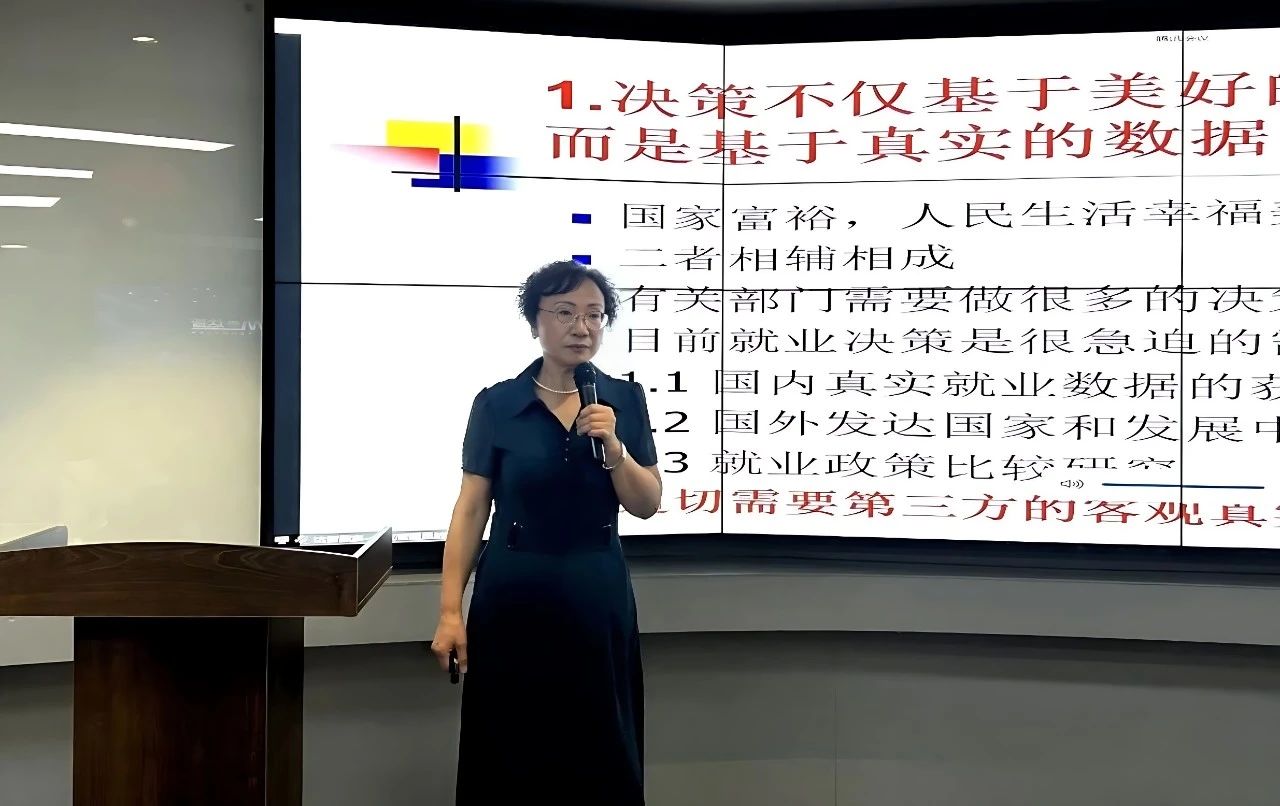 1.决策不仅基于美好的
而是基于真实的数据
国家富裕，人民生活幸福
二者相辅相成
有关部门需要做很多的决策
目前就业决策是很急迫的
1.1 国内真实就业数据的获
.2 国外发达国家和发展中
3 就业政策比较研究
切需要第三方的客观真实